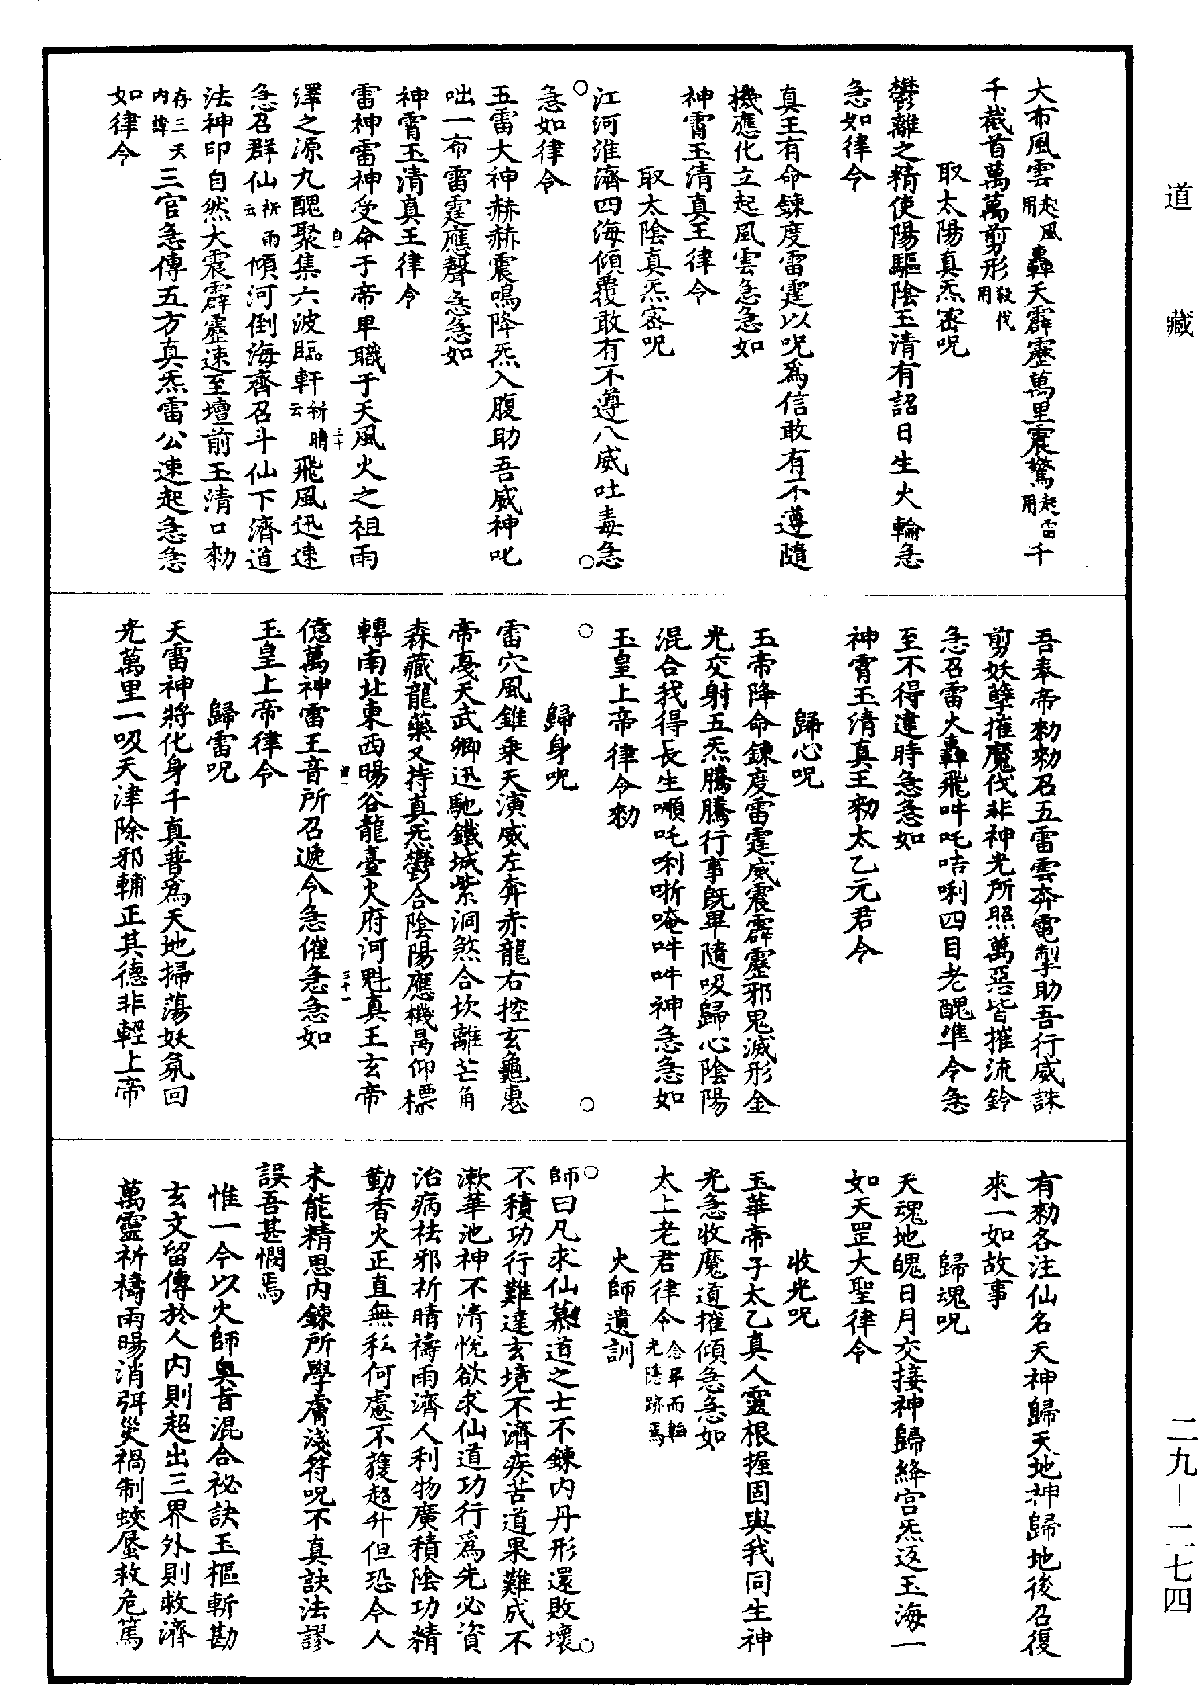 道藏
大布風雲起風用轟天霹靂萬里震驚起雷用千
千截首萬萬剪形殺伐用
取太陽真炁密呪
鬱離之精使陽驅陰玉清有詔日生火輪急
急如律令
真王有命鍊度雷霆以呪為信敢有不遵隨
機應化立起風雲急急如
神霄玉清真王律令
取太陰真炁密呪
江河淮濟四海傾覆敢有不遵八威吐毒急
急如律令
五雷大神赫赫震鳴降炁入腹助吾威神叱
咄一布雷霆應聲急急如
神霄玉清真王律令
雷神雷神受命于帝畀職于天風火之祖雨
澤之源九醜聚集六波臨軒祈晴云飛風迅速
急召群仙祈雨云傾河倒海齊召斗仙下濟道
法神印自然大震霹靂速至壇前玉清口勑
存三天內諱三官急傳五方真炁雷公速起急急
如律令
吾奉帝勑勑召五雷雲奔電掣助吾行威誅
剪妖孽摧魔伐非神光所照萬惡皆摧流鈴
急召雷火轟飛吽吒咭唎四目老醜準令急
至不得違時急急如
神霄玉清真王勑太乙元君令
歸心呪
玉帝降命鍊度雷霆威震霹靂邪鬼滅形金
光交射五炁騰騰行事既畢隨吸歸心陰陽
混合我得長生嚫吒唎哳唵吽吽神急急如
玉皇上帝律令勑
歸身呪
雷穴風錐乘天演威左奔赤龍右控玄龜惠
帝憂天武卿迅馳鐵城紫洞煞合坎離芒角
森藏龍藥叉持真炁鬱合陰陽應機暠仰標
轉南北東西暘谷龍臺火府河魁真王玄帝
億萬神雷王音所召遞令急催急急如
玉皇上帝律令
歸雷呪
天雷神將化身千真普為天地掃蕩妖氛回
光萬里一吸天津除邪輔正其德非輕上帝
有勑各注仙名天神歸天地神歸地後召復
來一如故事
歸魂呪
天魂地魄日月交接神歸絳宮炁返玉海一
如天罡大聖律令
收光呪
玉華帝子太乙真人靈根握固與我同生神
光急收魔道摧傾急急如
太上老君律令念畢而輪光隱跡焉
火師遺訓
師曰凡求仙慕道之士不鍊內丹形還敗壞
不積功行難達玄境不濟疾苦道果難成不
漱華池神不清悅欲求仙道功行為先必資
治病祛邪祈晴禱雨濟人利物廣積陰功精
勤香火正直無私何慮不獲超升但恐今人
未能精思內鍊所學膚淺符呪不真訣法謬
誤吾甚憫焉
惟一今以火師奧旨混合祕訣玉樞斬勘
玄文留傳於人內則超出三界外則救濟
萬靈祈禱雨暘消弭災禍制蛟蜃救危篤
二九—二七四